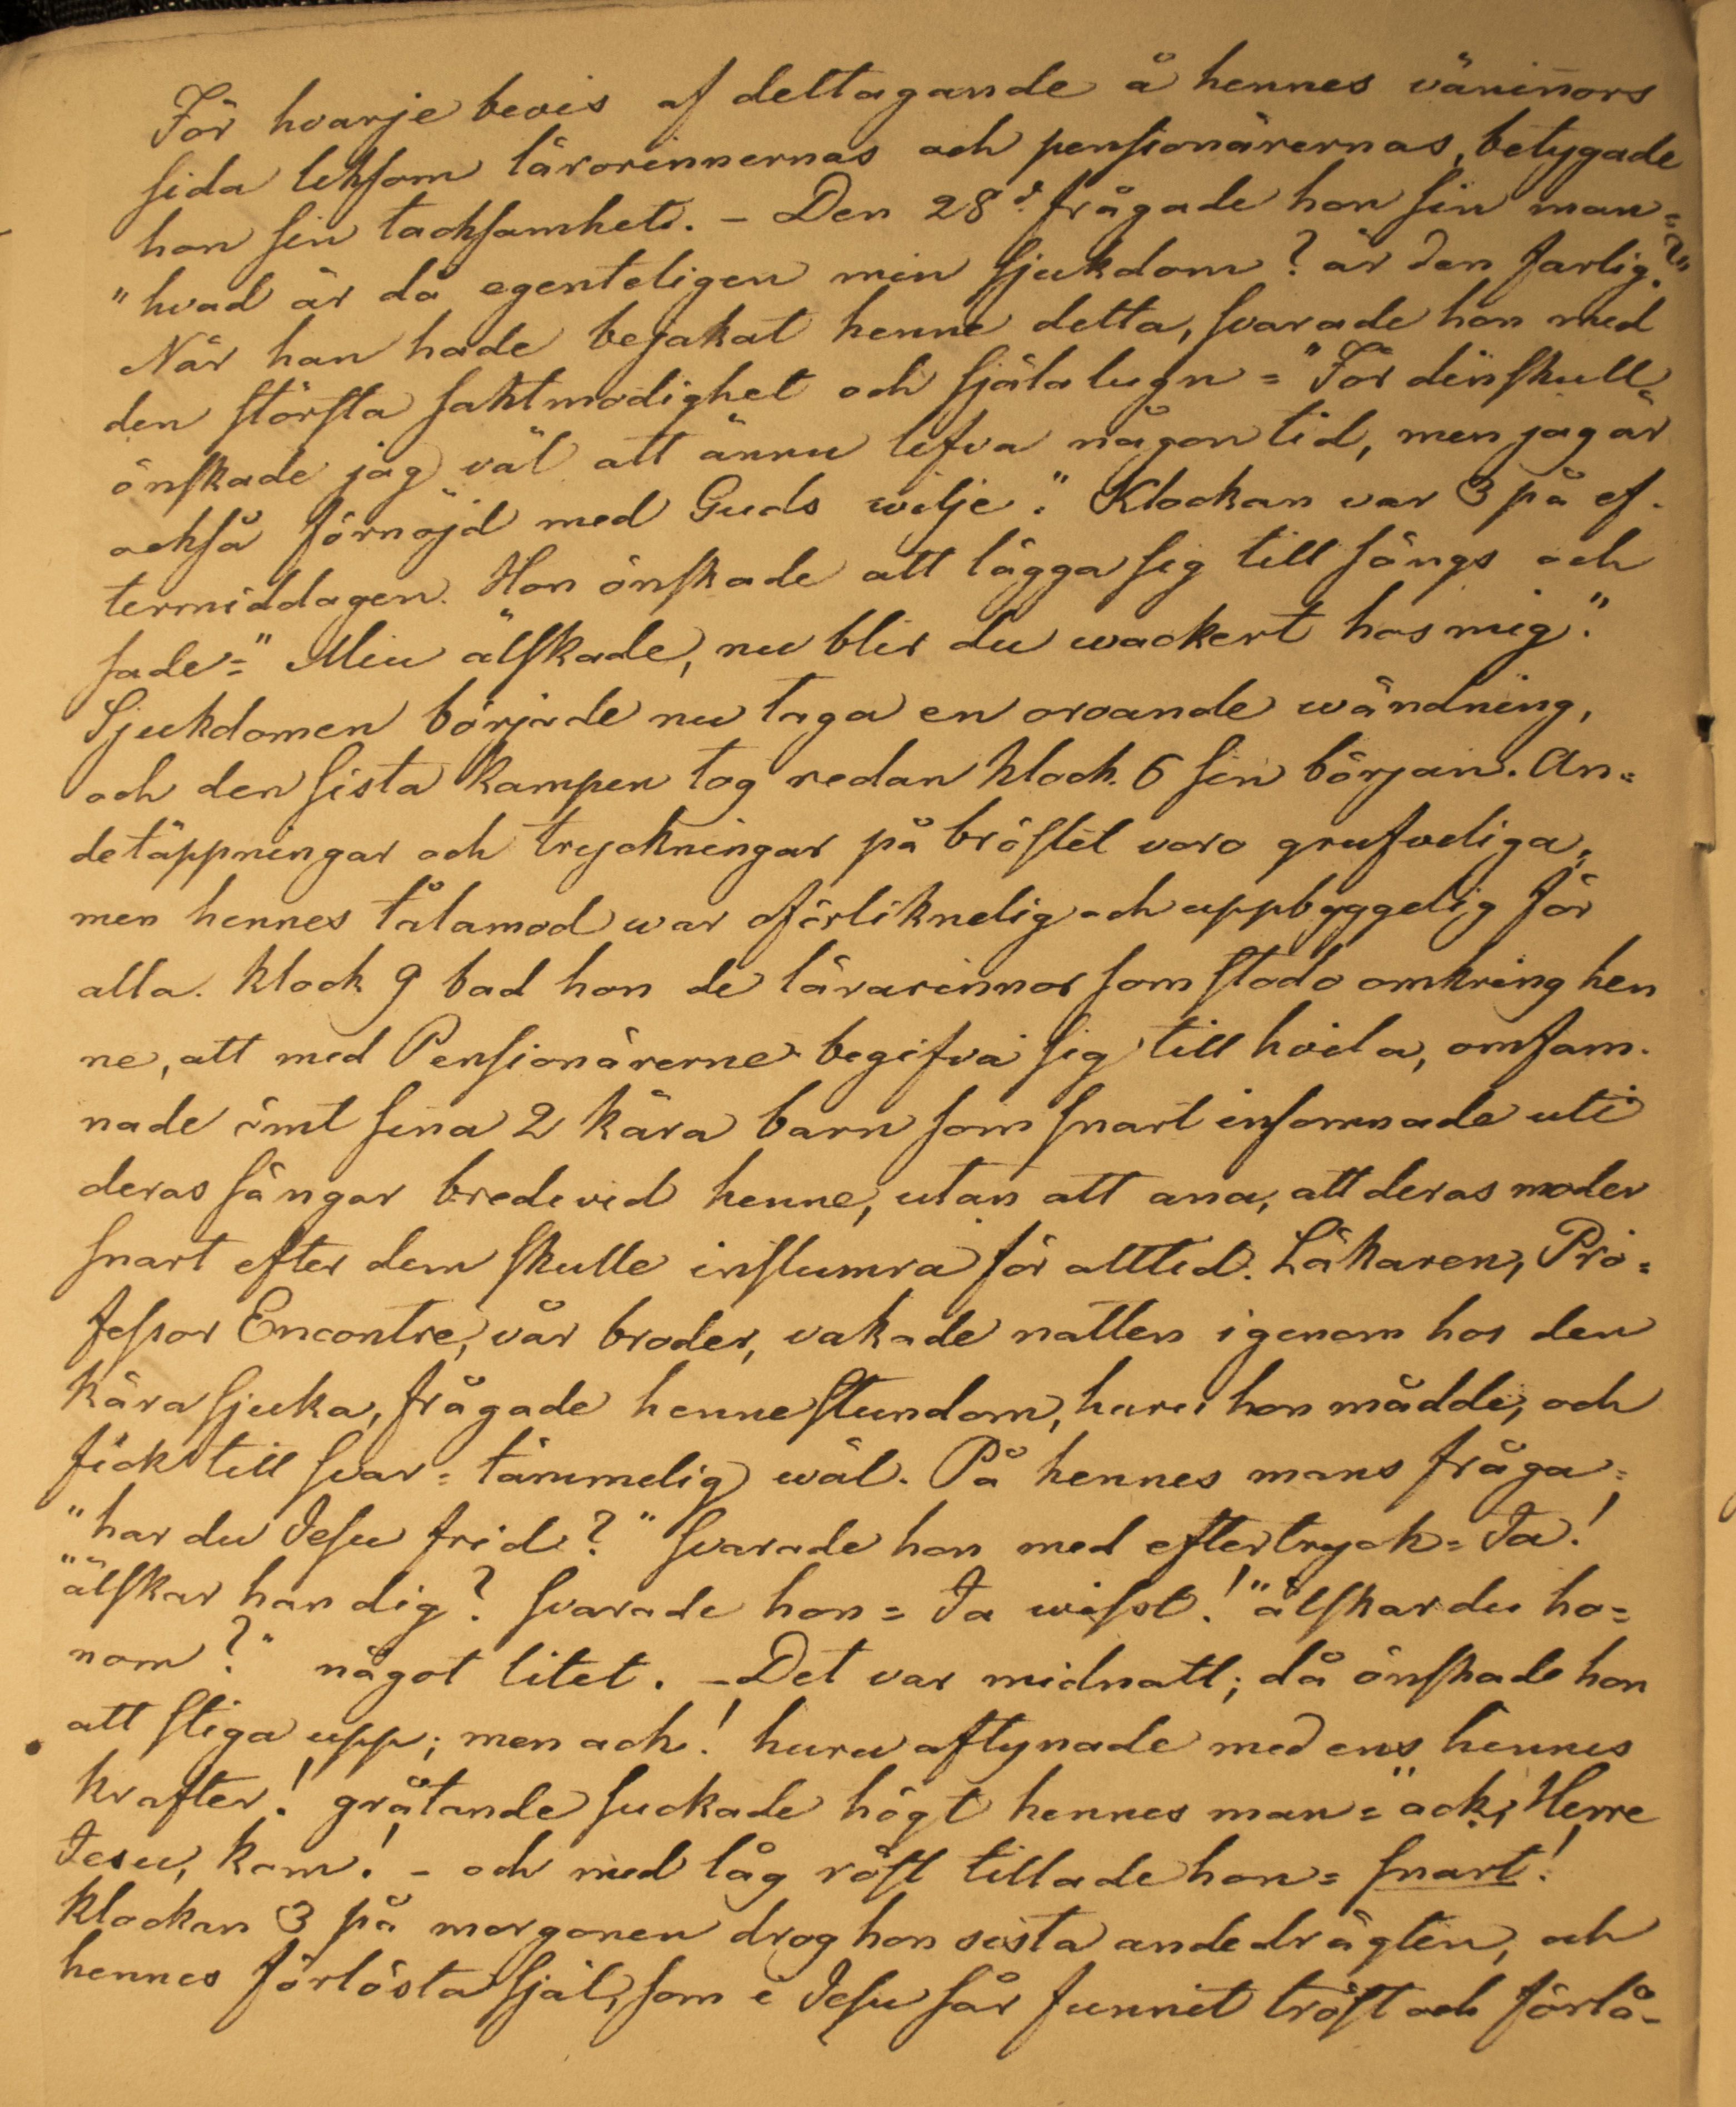 För hvarje bevis af deltagande å hennes väninnors
sida liksom lärorinnernas och pensionärernas, betygade
hon sin tacksamhet. - Den 28d. frågade hon sin man =
"hvad är då egenteligen min sjukdom? är den farlig?"
När han hade bejakat henne detta, svarade hon med
den största saktmodighet och själalugn = "För din skull
önskade jag väl att ännu lefva någon tid, men jag är
också förnöjd med Guds wilje." Klockan var 3 på ef-
termiddagen. Hon önskade att lägga sig till sängs och
sade = "Min älskade, nu blir du wackert hos mig."
Sjukdomen började nu taga en oroande wändning,
och den sista kampen tog redan klock. 6 sin början. An=
detäppningar och tryckningar på bröstet voro grufveliga,
men hennes tålamod war oförliknelig och uppbyggelig för
alla. klock 9 bad hon de lärarinnor som stodo omkring hen
ne, att med Pensionärerne begifva sig till hvila, omfam-
nade ömt sina 2 kära barn som snart insomnade uti
deras sängar bredevid henne, utan att ana, att deras moder
snart efter dem skulle inslumra för alltid. Läkaren, Pro=
fessor Encontre, vår broder, vakade natten igenom hos den
kära sjuka, frågade henne stundom, huru hon mådde, och
fick till svar = tämmelig wäl. På hennes mans fråga =
"har du Jesu frid?" svarade hon med eftertryck = Ja!
"älskar han dig? svarade hon = Ja wisst! "älskar du ho=
nom?" något litet. - Det var midnatt; då önskade hon
att stiga upp; men ach! huru aftynade med ens hennes
krafter! gråtande suckade högt hennes man = "ack, Herre
Jesu, kom! - och med låg röst tillade hon = snart!
Klockan 3 på morgonen drog hon sista andedrägten, och
hennes förlösta själ, som i Jesu sår funnit tröst och förlå-